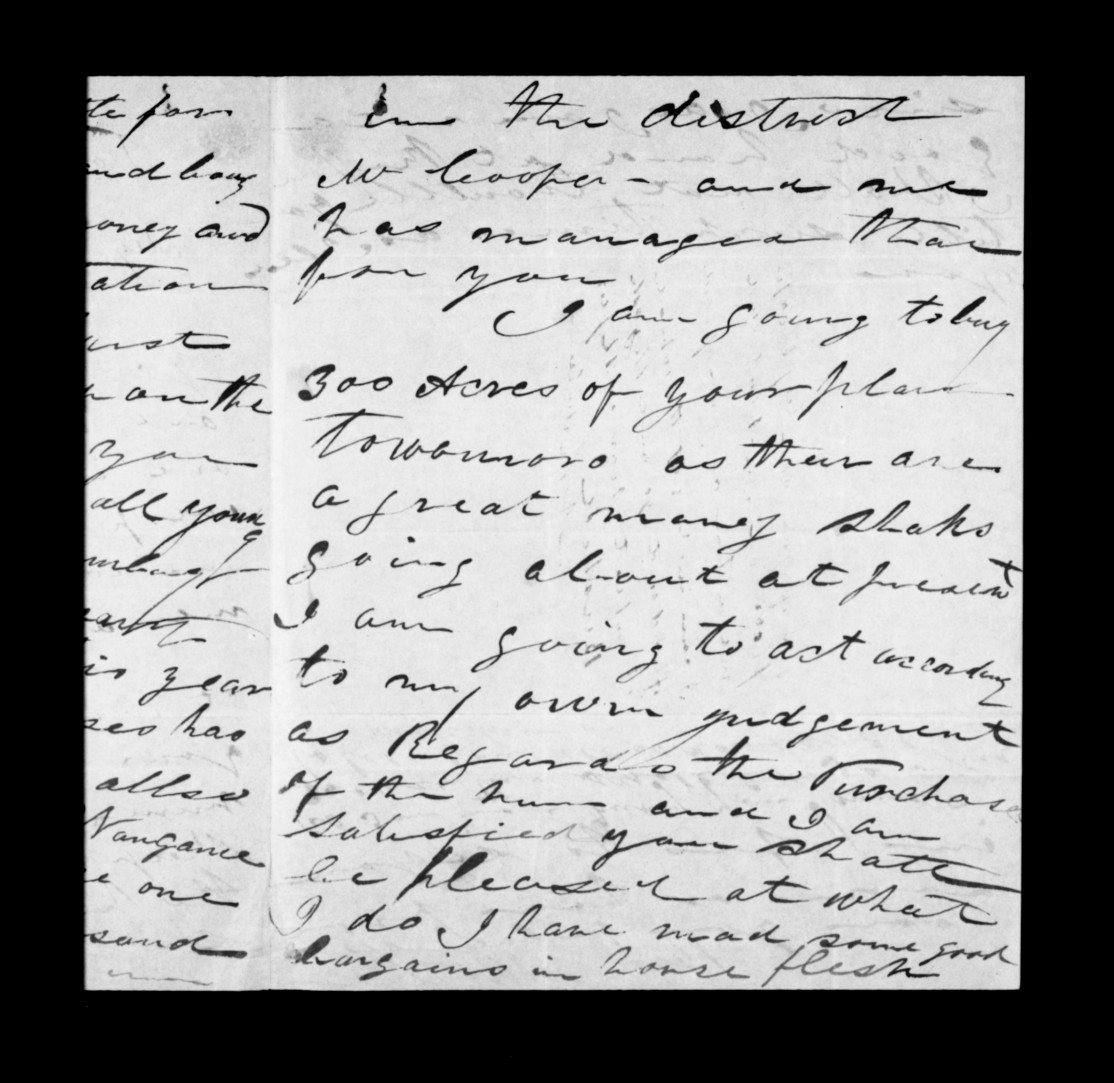 te for
and buy
oney and
ation
urst
on the
you
all young

is year
ses has
allso
Nangance
e one
sand
in the distrest
Mr Cooper - and me
has managed that
for you
I am going to buy
300 Acres of your plan
towomoro as their are
a great maney shaks
going about at present
I am going to act according
to my own judgement
as Regards the Purchase
of the run and I am
satisfied you shall
be pleased at what
I do I have mad some good
bargains in horse flesh